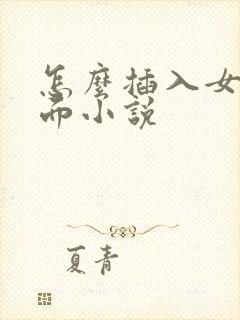 怎麼插入女
而小說
夏青